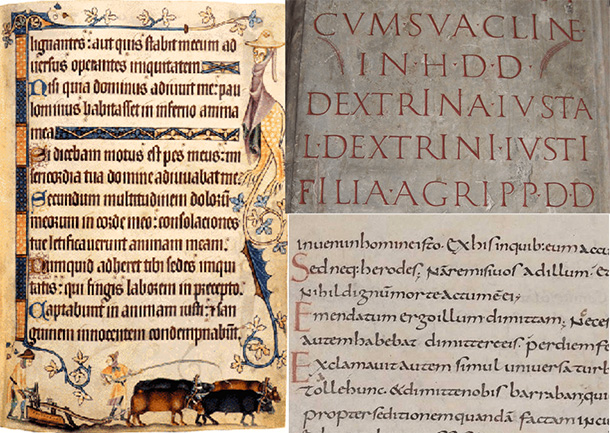 lignantes: aut quis stabit mecum ad
uersus operantes iniquitatem
Nisi quia dominus adiuuit me: pau
lominus habitasset in inferno anima
mea
Si dicebam motus est pes meus: mi
sericordia tua domine adiuuabat me
Secundum multitudinem dolorum
meorum in corde meo: consolaciones
tue letificauerunt animam meam.
Numquid adheret tibi sedes iniqui
tatis: qui fingis laborem in precepto.
Captabunt in animam iusti: et san
guinem innocentem condempnabunt
CVM·SVA·CLINE·
IN·H·D·D·
DEXTRINA·IVSTA
L·DEXTRINI·IVSTI
FILIA·AGRIPP·D·D
inveni in homine isto. Ex his in quib: eum accu
Sed neq: herodes; Nam remisi vos ad illum. Et
Nihil dignum morte actum ē ei;
Emendatum ergo illum dimittam; Neces
autem habebat dimittere eis. per diem fe
Exclamavit autem simul universa turb
Tolle hunc. & dimitte nobis barrabanqui
propter seditionem quandā factam inciu